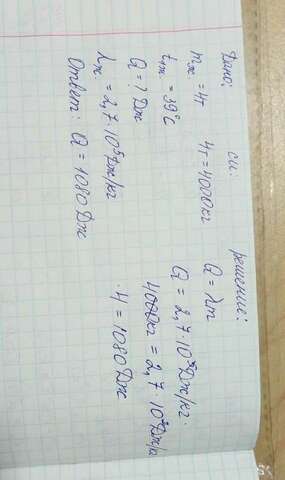 Дано:
mж = 4т
tж = 39°C
Q = ? Дж
λж = 2,7 · 10⁵ Дж/кг
Ответ: Q = 1080 Дж
си:
4т = 4000 кг
решение:
Q = λm
Q = 2,7 · 10⁵ Дж/кг ·
4000кг = 2,7 · 10² Дж/к
· 4 = 1080 Дж